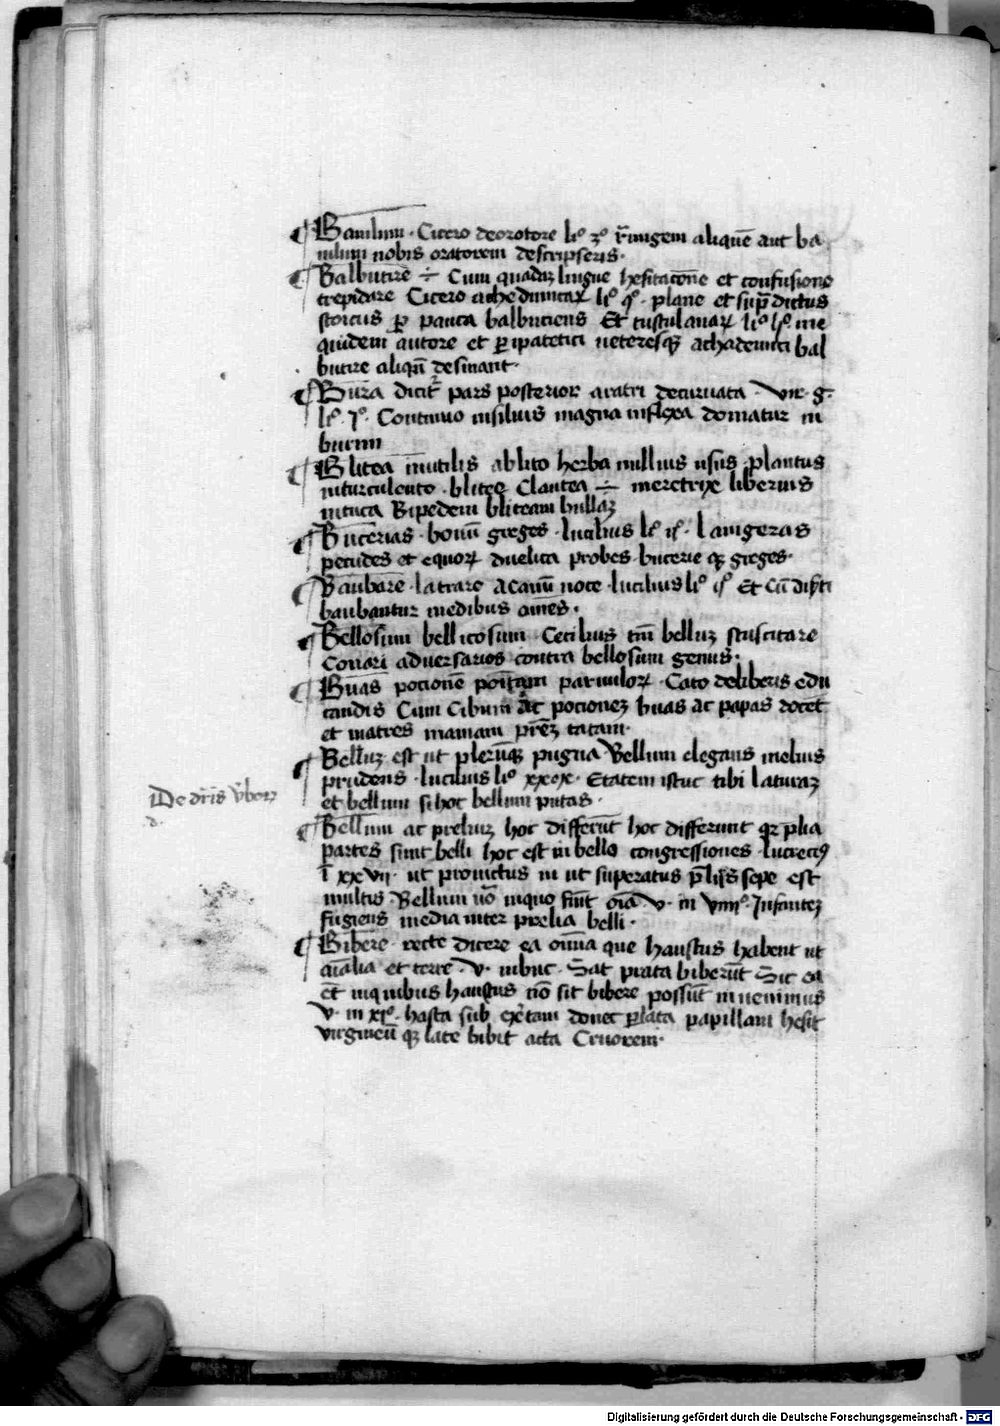 Baiulum · Cicero deoratore li° 3° r̄imigem aliquē aut ba
iulum nobis oratorem descripseris ·
Balbutire ÷ Cum quadaz lingue hesitacōne et confusione
trepidare Cicero achedimicaꝝ li° q° · plane et sup̄ dictus
stoicus ꝑ pauca balbuciens Et tusculanaꝝ li° me
quidem autore et ꝑipatetici ueteresqꝫ achademici bal
butire aliqn̄ desinant ·
Bura dicit̄ pars posterior aratri decuruata · vir · g ·
li° · i° · Continuo insiluis magna inflexa domatur in
burim
Blitea inutilis ablito herba nullius usus · plautus
inturculento · blitea Clautea ÷ meretrix liberius
intuca Bipedem bliteam bulluaz
Bucerias · bouū greges · lucilius li° ii° · lanigeras
pecudes et equoꝝ duelica probes · bucerie qꝫ greges ·
Baubare · latrare acanū uoce · lucilius li° ii° Et cū
baubantur inedibus oīnes ·
Bellosum bellicosum · Cecilius tm̄ belluz suscitare
Conari aduersarios contra bellosum genus ·
Buas pocionē paruuloꝝ · Cato deliberis edu
candis Cum Cibum āc pocionez buas ac papas docet
et matres mamam prēz tatam ·
Belluz · est ut pleruqꝫ pugna · Bellum elegans melius
prudens · lucilius li° xxix · Etatem istuc tibi laturaz
et bellum si hoc bellum putas ·
De dr̄is v̄borz
d ·
Bellum ac preliuz hoc differūt hoc differunt qꝛ p̄lia
partes sunt belli hoc est in bello congressiones lucreciꝰ
ī xxvii · ut proinctus in ut superatus p̄liis sepe est
multis · Bellum uō inquo fiūt oīa v · in viiii° · Infantez
fugiens media inter prelia belli ·
Bibere · recte dicere ea omīa que haustus habent ut
aīalia et terre · v · inbuc · Sat prata biberūt Sic ea
ēt inquibus haustus nō sit bibere possūt inuenimus
v · in xi° · hasta sub exertam donec ꝑlata papillam hesit
virgineū qꝫ late bibit acta Cruorem ·
Digitalisierung gefördert durch die Deutsche Forschungsgemeinschaft - DFG